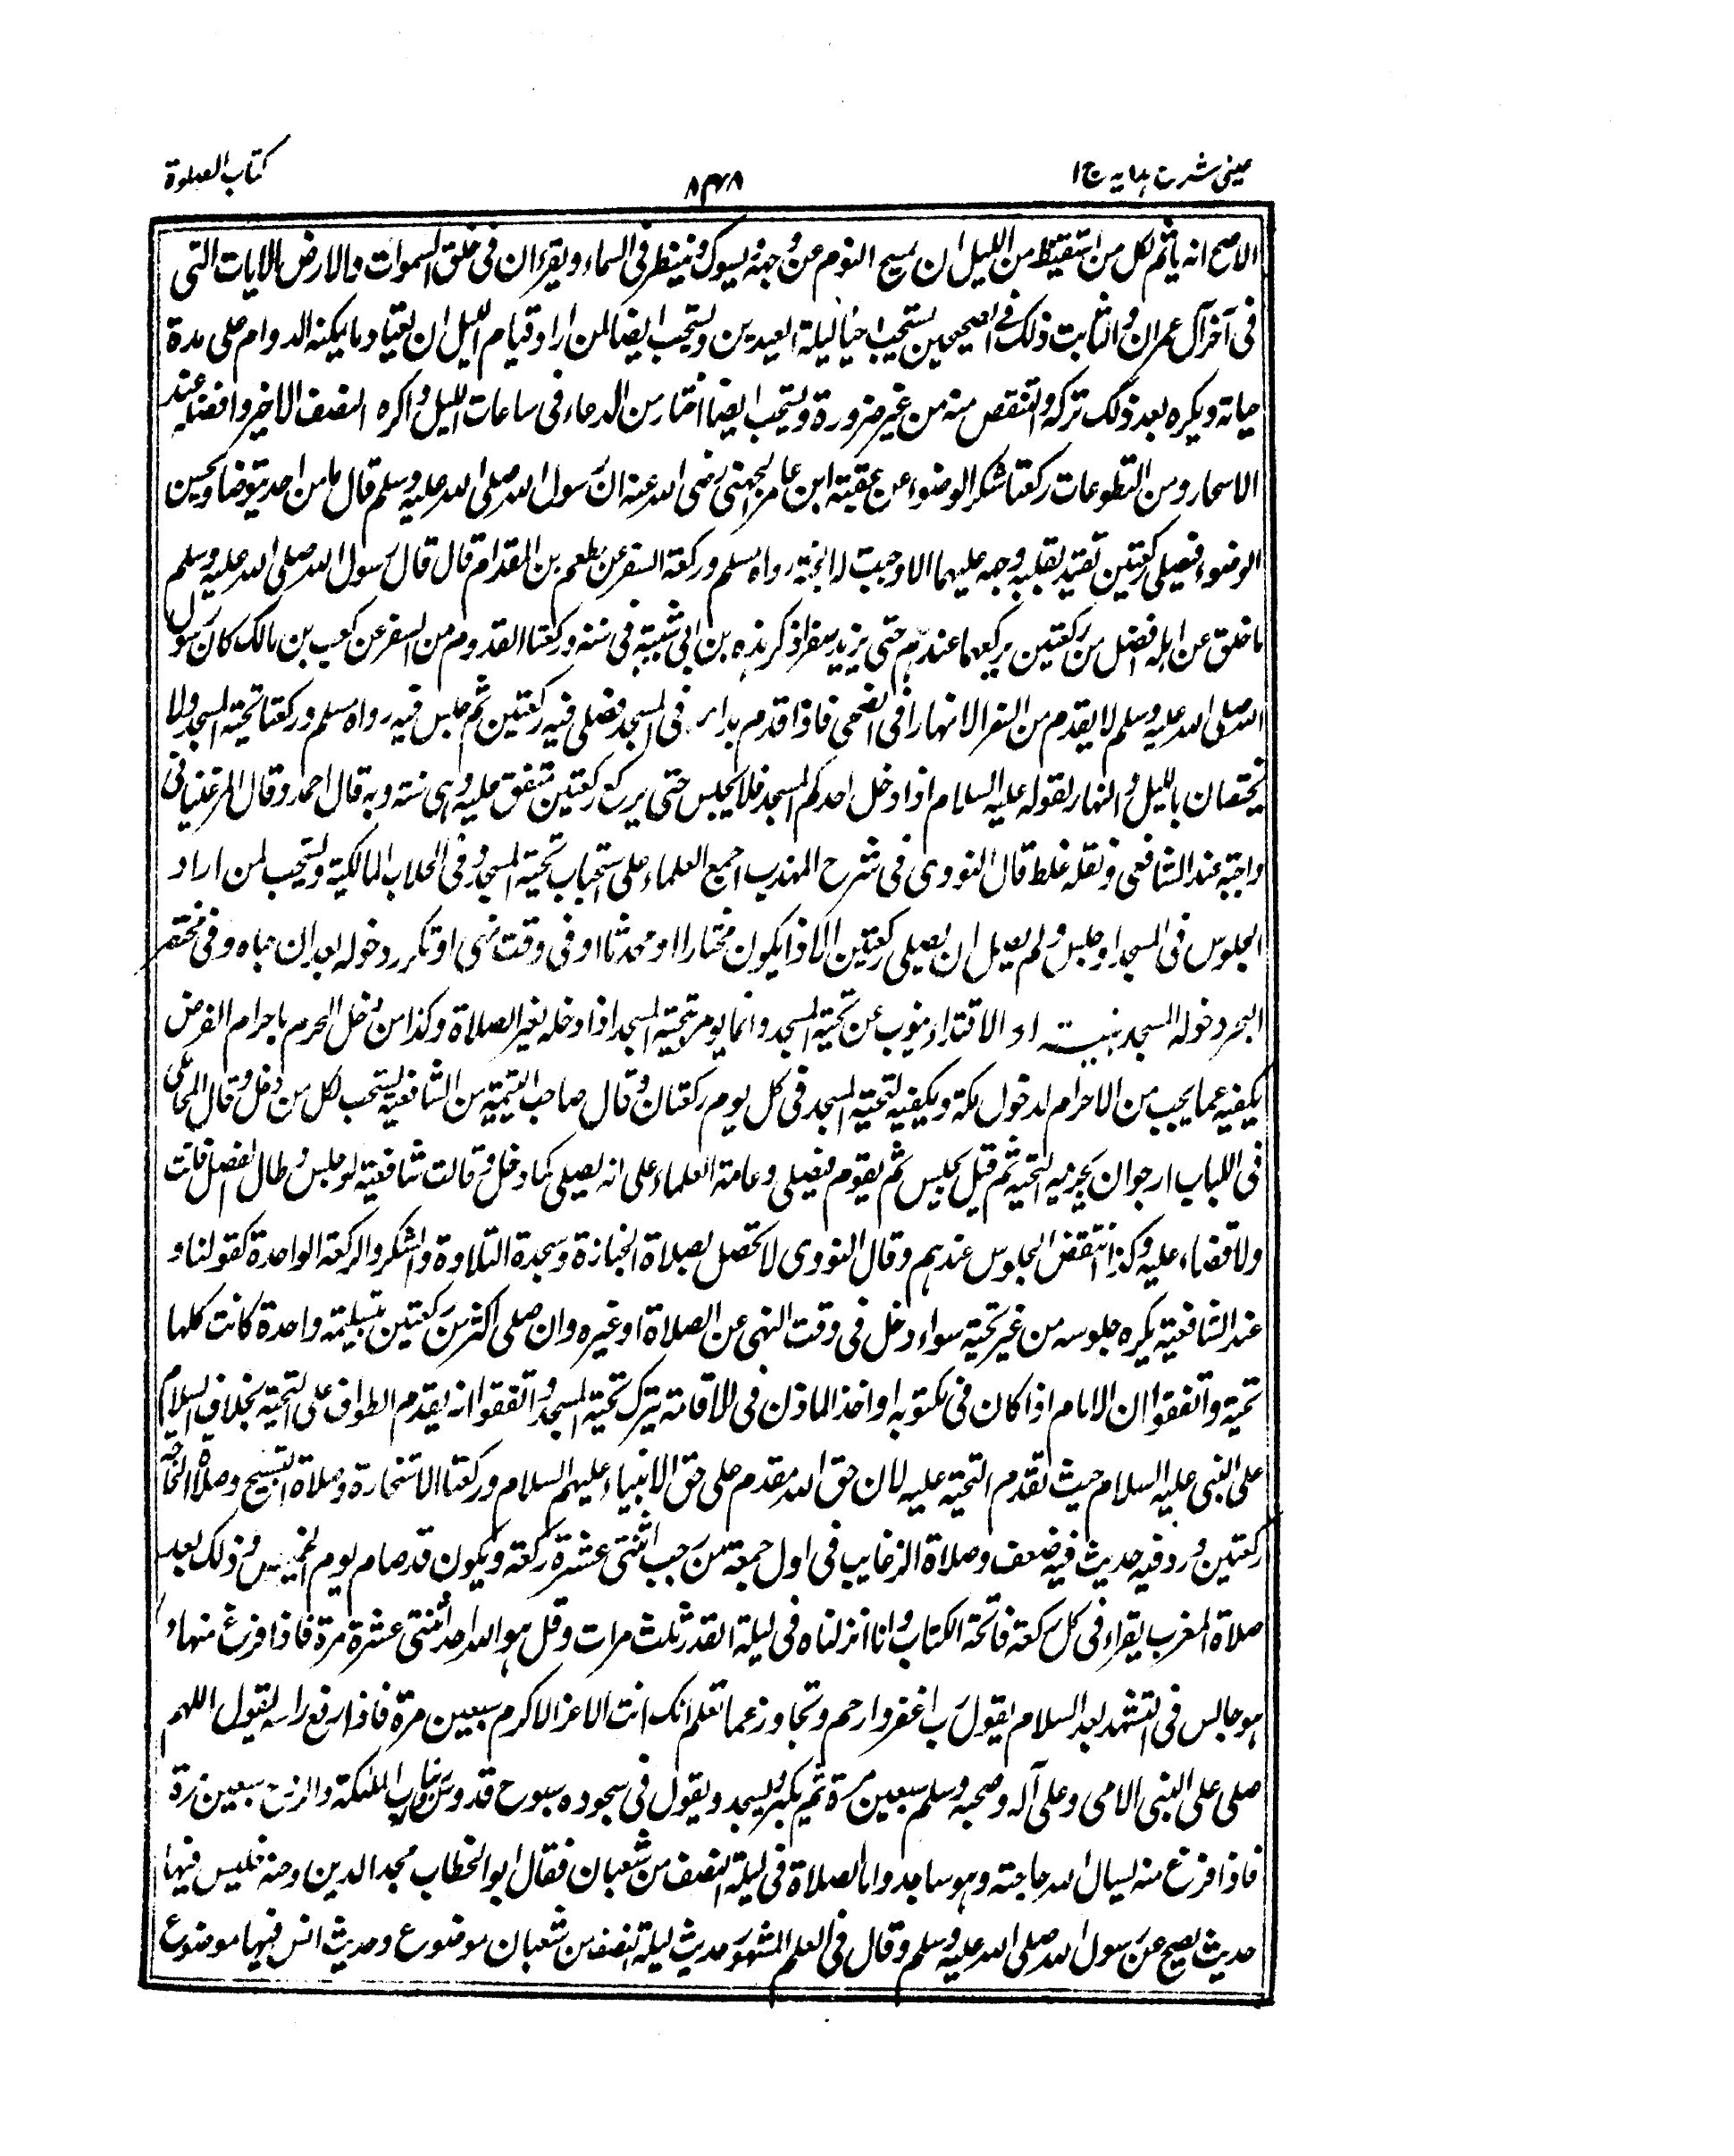 عینی شرح ہدایہ ج ۱
۸۴۸
کتاب الصلوة
الاصح انه یأثم لکل من استیقظ من اللیل ان یمسح النوم عن وجهه ویسوک وینظر فی السماء ویقرء ان فی خلق السموات والارض الایات التی
فی آخر آل عمران والثابت ذلک فی الصحیحین یستحب احیا لیلة العیدین ویستحب ایضا لمن اراد قیام اللیل ان یعتاد ما یمکنه الدوام علی مدة
حیاته ویکره بعد ذلک ترکه والنقص منه من غیر ضرورة ویستحب ایضا من الدعاء فی ساعات اللیل واکره النصف الاخیر وافضله عند
الاسحار ومن التطوعات رکعتا شکر الوضوء عن عقبة ابن عامر الجهنی رضی الله عنه ان رسول الله صلی الله علیه وسلم قال ما من احد یتوضا ویحسن
الوضوء فیصلی رکعتین بقلبه وجه علیهما الا وجبت له الجنة رواه مسلم ورکعة السفر عن مطعم بن المقدام قال قال رسول الله صلی الله علیه وسلم
ما خلق عن اهله افضل من رکعتین یرکعهما عندهم حتی یزید سفرا ذکر هذه بن ابی شیبة فی سننه ورکعتا القدوم من السفر عن کعب بن مالک کان رسول
الله صلی الله علیه وسلم لا یقدم من السفر الا نهارا فی الضحی فاذا قدم بدأ فی المسجد فصلی فیه رکعتین ثم جلس فیه رواه مسلم ورکعتا تحیة المسجد ولا
یختصان باللیل والنهار لقوله علیه السلام اذا دخل احدکم المسجد فلا یجلس حتی یرکع رکعتین متفق علیه وهی سنة وبه قال احمد وقال المرغینانی
واجبة عند الشافعی ونقله غلط قال النووی فی شرح المهذب اجمع العلماء علی استحباب تحیة المسجد وفی الجلاب المالکیة ویستحب لمن اراد
الجلوس فی المسجد او جلس ولم یصل ان یصلی رکعتین الا اذا یکون مختارا او محدثا او فی وقت نهی او تکرر دخوله بعد ان حیاه وفی مختصر
البحر دخوله المسجد بنیة او الاقتداء ینوب عن تحیة المسجد وانما یومر بتحیة المسجد اذا دخله لغیر الصلاة وکذا من دخل الحرم باحرام الفرض
یکفیه عما یجب من الاحرام لدخول مکة ویکفیه لتحیة المسجد فی کل یوم رکعتان وقال صاحب التتمة من الشافعیة یستحب لکل من دخل وقال المحاملی
فی اللباب ارجو ان یجزیه التحیة ثم قیل یجلس ثم یقوم فیصلی وعامة العلماء علی انه یصلی کما دخل وقالت شافعیة لو جلس وطال الفصل فاتت
ولا قضاء علیه وکذا تنتقض الجلوس عندهم وقال النووی لا تحصل بصلاة الجنازة وسجدة التلاوة والشکر والرکعة الواحدة کقولنا و
عند الشافعیة یکره جلوسه من غیر تحیة سواء دخل فی وقت النهی عن الصلاة او غیره وان صلی اکثر من رکعتین بتسلیمة واحدة کانت کلها
تحیة واتفقوا ان الامام اذا کان فی مکتوبة او اخذ الماذن فی الاقامة یترک تحیة المسجد واتفقوا انه یقدم الطواف علی التحیة بخلاف السلام
علی النبی علیه السلام حیث تقدم التحیة علیه لان حق الله مقدم علی حق الانبیاء علیهم السلام ورکعتا الاستخارة وصلاة التسبیح وصلاة الحاجة
رکعتین ورد فیه حدیث فیه ضعف وصلاة الرغایب فی اول جمعة من رجب اثنتی عشرة رکعة ویکون قد صام یوم الخمیس وذلک بعد
صلاة المغرب یقراء فی کل رکعة فاتحة الکتاب وانا انزلناه فی لیلة القدر ثلث مرات وقل هو الله احد اثنتی عشرة مرة فاذا فرغ منها و
هو جالس فی التشهد بعد السلام یقول رب اغفر وارحم وتجاوز عما تعلم انک انت الاعز الاکرم سبعین مرة فاذا رفع راسه یقول اللهم
صلی علی النبی الامی وعلی آله وصحبه وسلم سبعین مرة ثم یکبر ویسجد ویقول فی سجوده سبوح قدوس رب الملئکة والروح سبعین مرة
فاذا فرغ منه یسال الله حاجته وهو ساجد واما الصلاة فی لیلة النصف من شعبان فقال ابو الخطاب مجد الدین وحنه فلیس فیها
حدیث یصح عن رسول الله صلی الله علیه وسلم وقال فی العلم المشهور حدیث لیلة النصف من شعبان موضوع وحدیث انس فیها موضوع